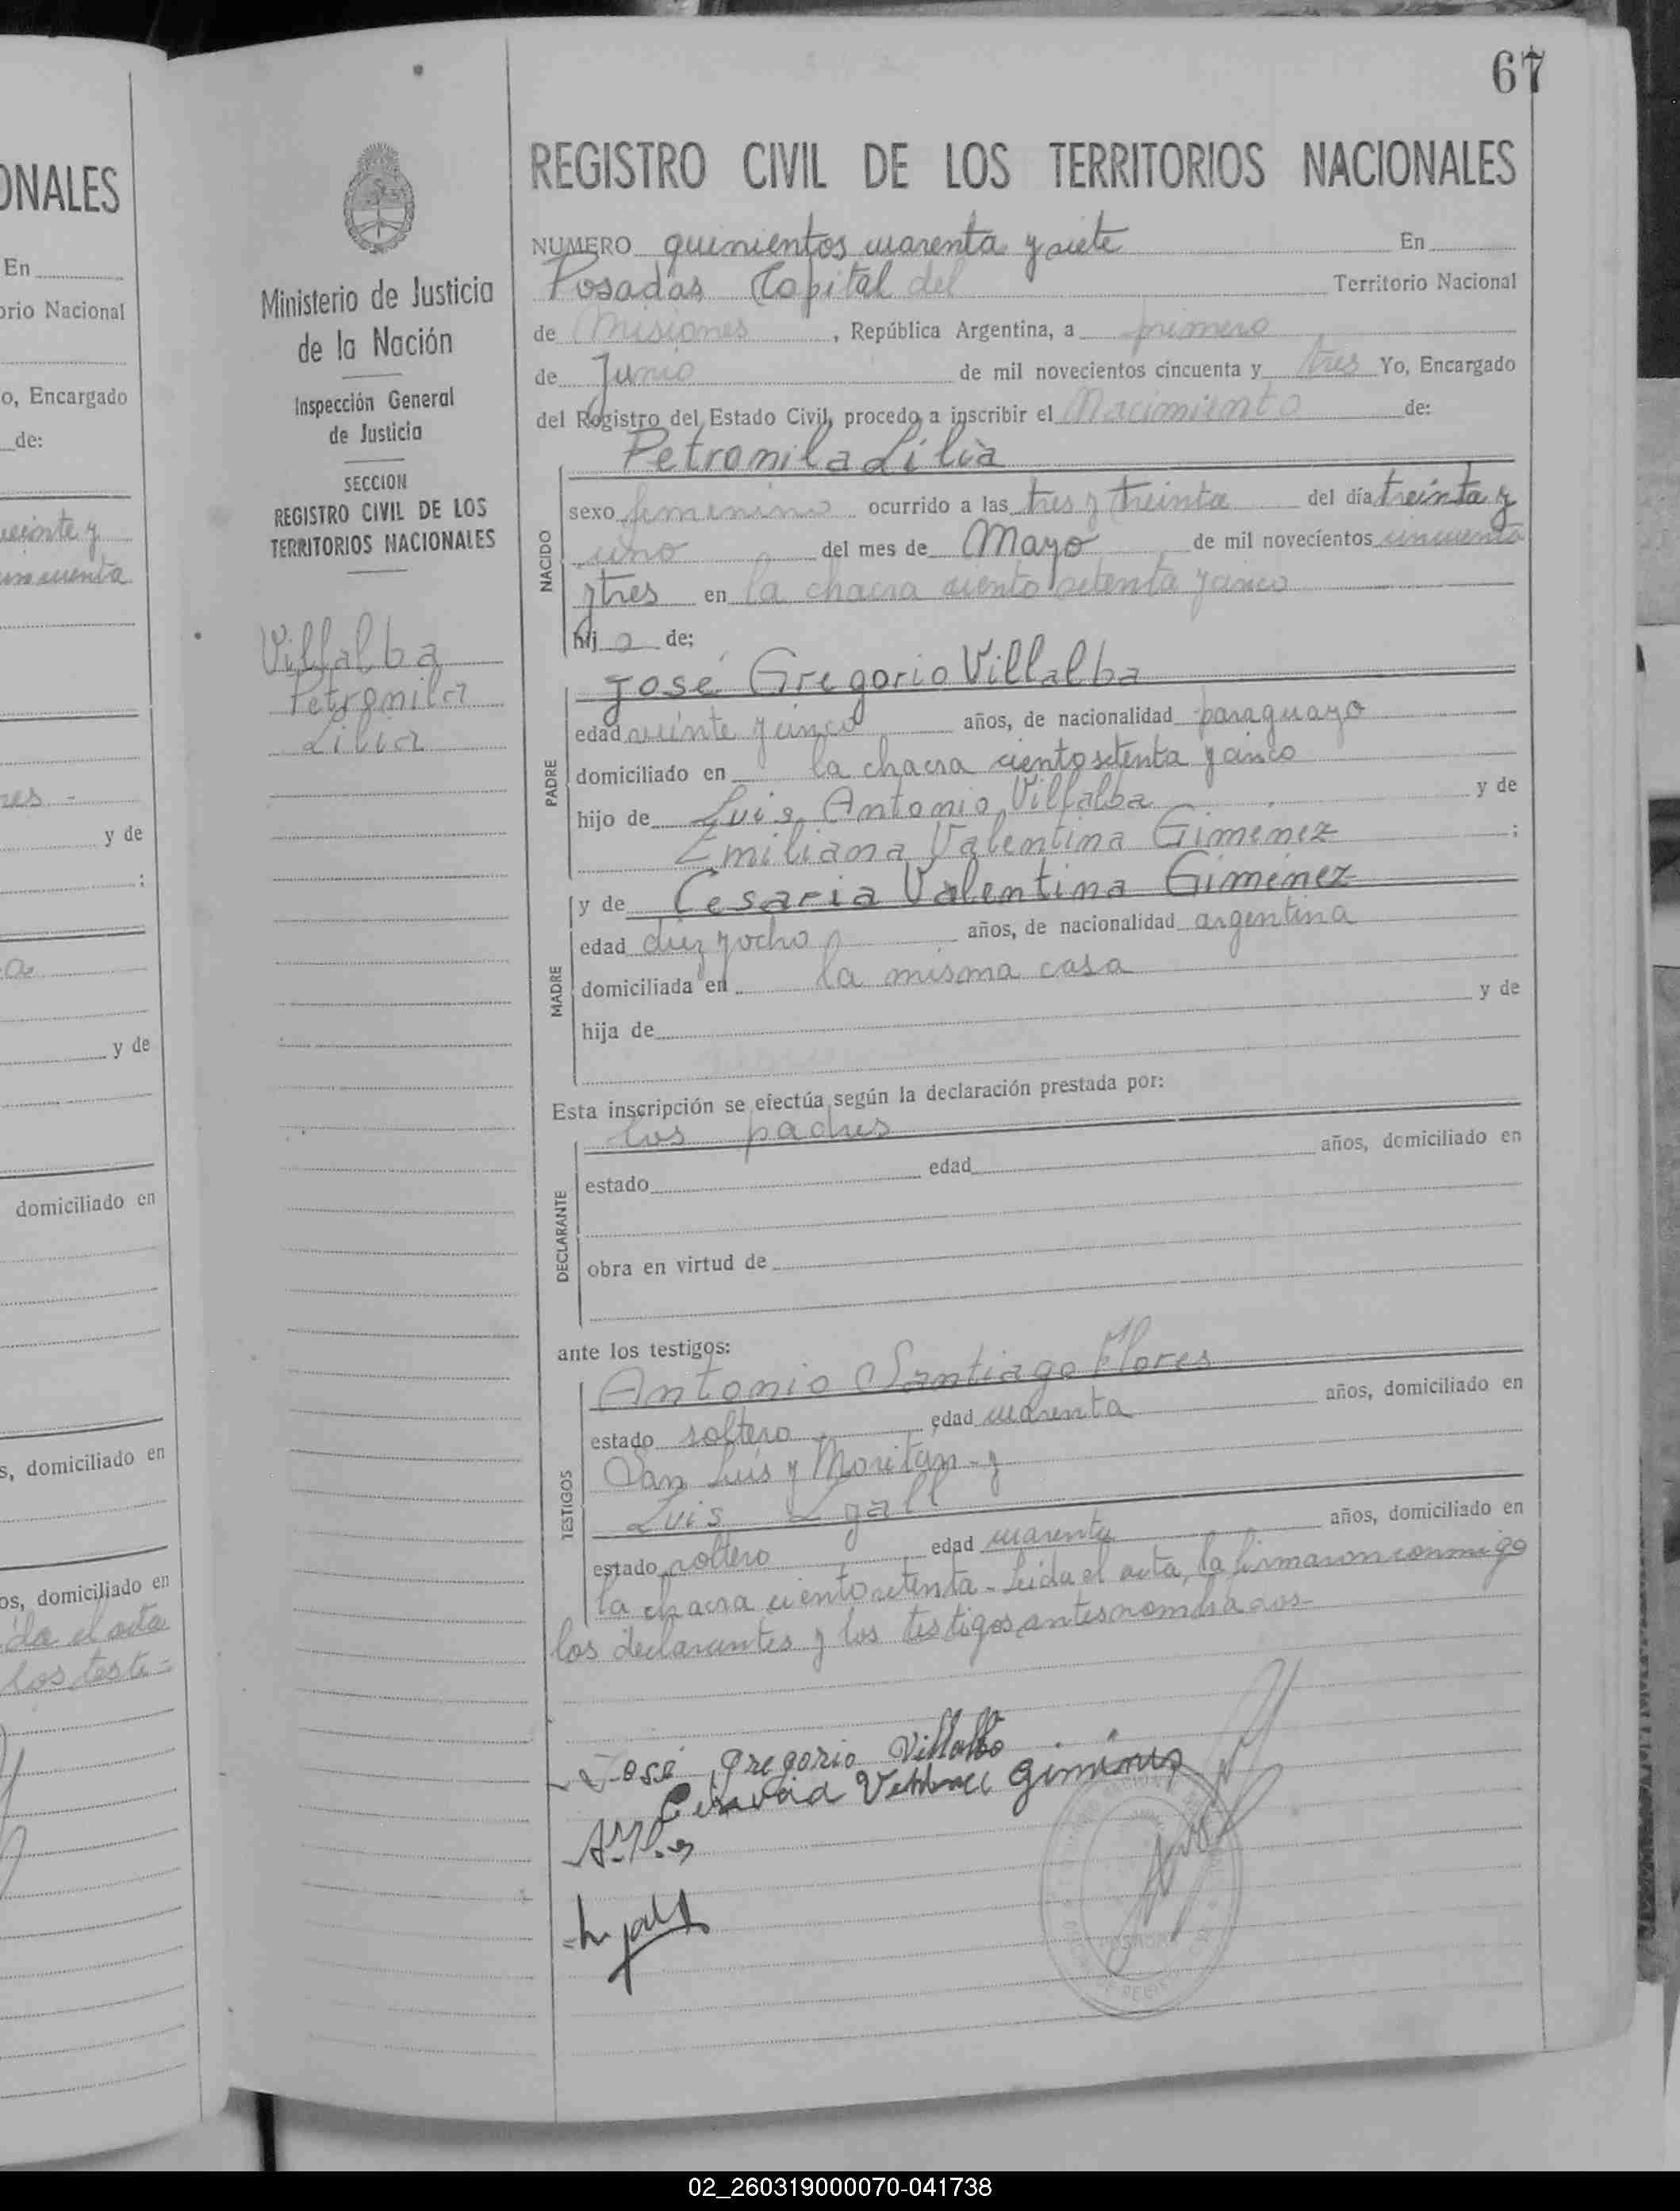 ONALES
En
orio Nacional
o, Encargado
de:
veinte y
cincuenta
res -
y de
;
a
y de
domiciliado en
s, domiciliado en
os, domiciliado en
da el acta
los testi=
67
Ministerio de Justicia
de la Nación
Inspección General
de Justicia
SECCION
REGISTRO CIVIL DE LOS
TERRITORIOS NACIONALES
Villalba
Petronila
Lilia
REGISTRO CIVIL DE LOS TERRITORIOS NACIONALES
NUMERO quinientos cuarenta y siete En
Posadas Capital del Territorio Nacional
de Misiones, República Argentina, a primero
de Junio de mil novecientos cincuenta y tres Yo, Encargado
del Registro del Estado Civil, procedo a inscribir el Nacimiento de:
Petronila Lilia
NACIDO
sexo femenino ocurrido a las tres y treinta del día treinta y
uno del mes de Mayo de mil novecientos cincuenta
y tres en la chacra ciento setenta y cinco
hij a de;
José Gregorio Villalba
PADRE
edad veinte y cinco años, de nacionalidad paraguayo
domiciliado en la chacra ciento setenta y cinco
hijo de Luis Antonio Villalba y de
Emiliana Valentina Gimenez ;
y de Cesaria Valentina Giménez
MADRE
edad diez y ocho años, de nacionalidad argentina
domiciliada en la misma casa
hija de y de
Esta inscripción se efectúa según la declaración prestada por:
los padres
DECLARANTE
estado edad años, domiciliado en
obra en virtud de
ante los testigos:
Antonio Santiago Flores
TESTIGOS
estado soltero edad cuarenta años, domiciliado en
San Luis y Moritán - y
Luis Lgall
estado soltero edad cuarenta años, domiciliado en
la chacra ciento setenta - Leida el acta, la firmaron conmigo
los declarantes y los testigos antesnombrados-
José Gregorio Villalba
Gimenez
02_260319000070-041738